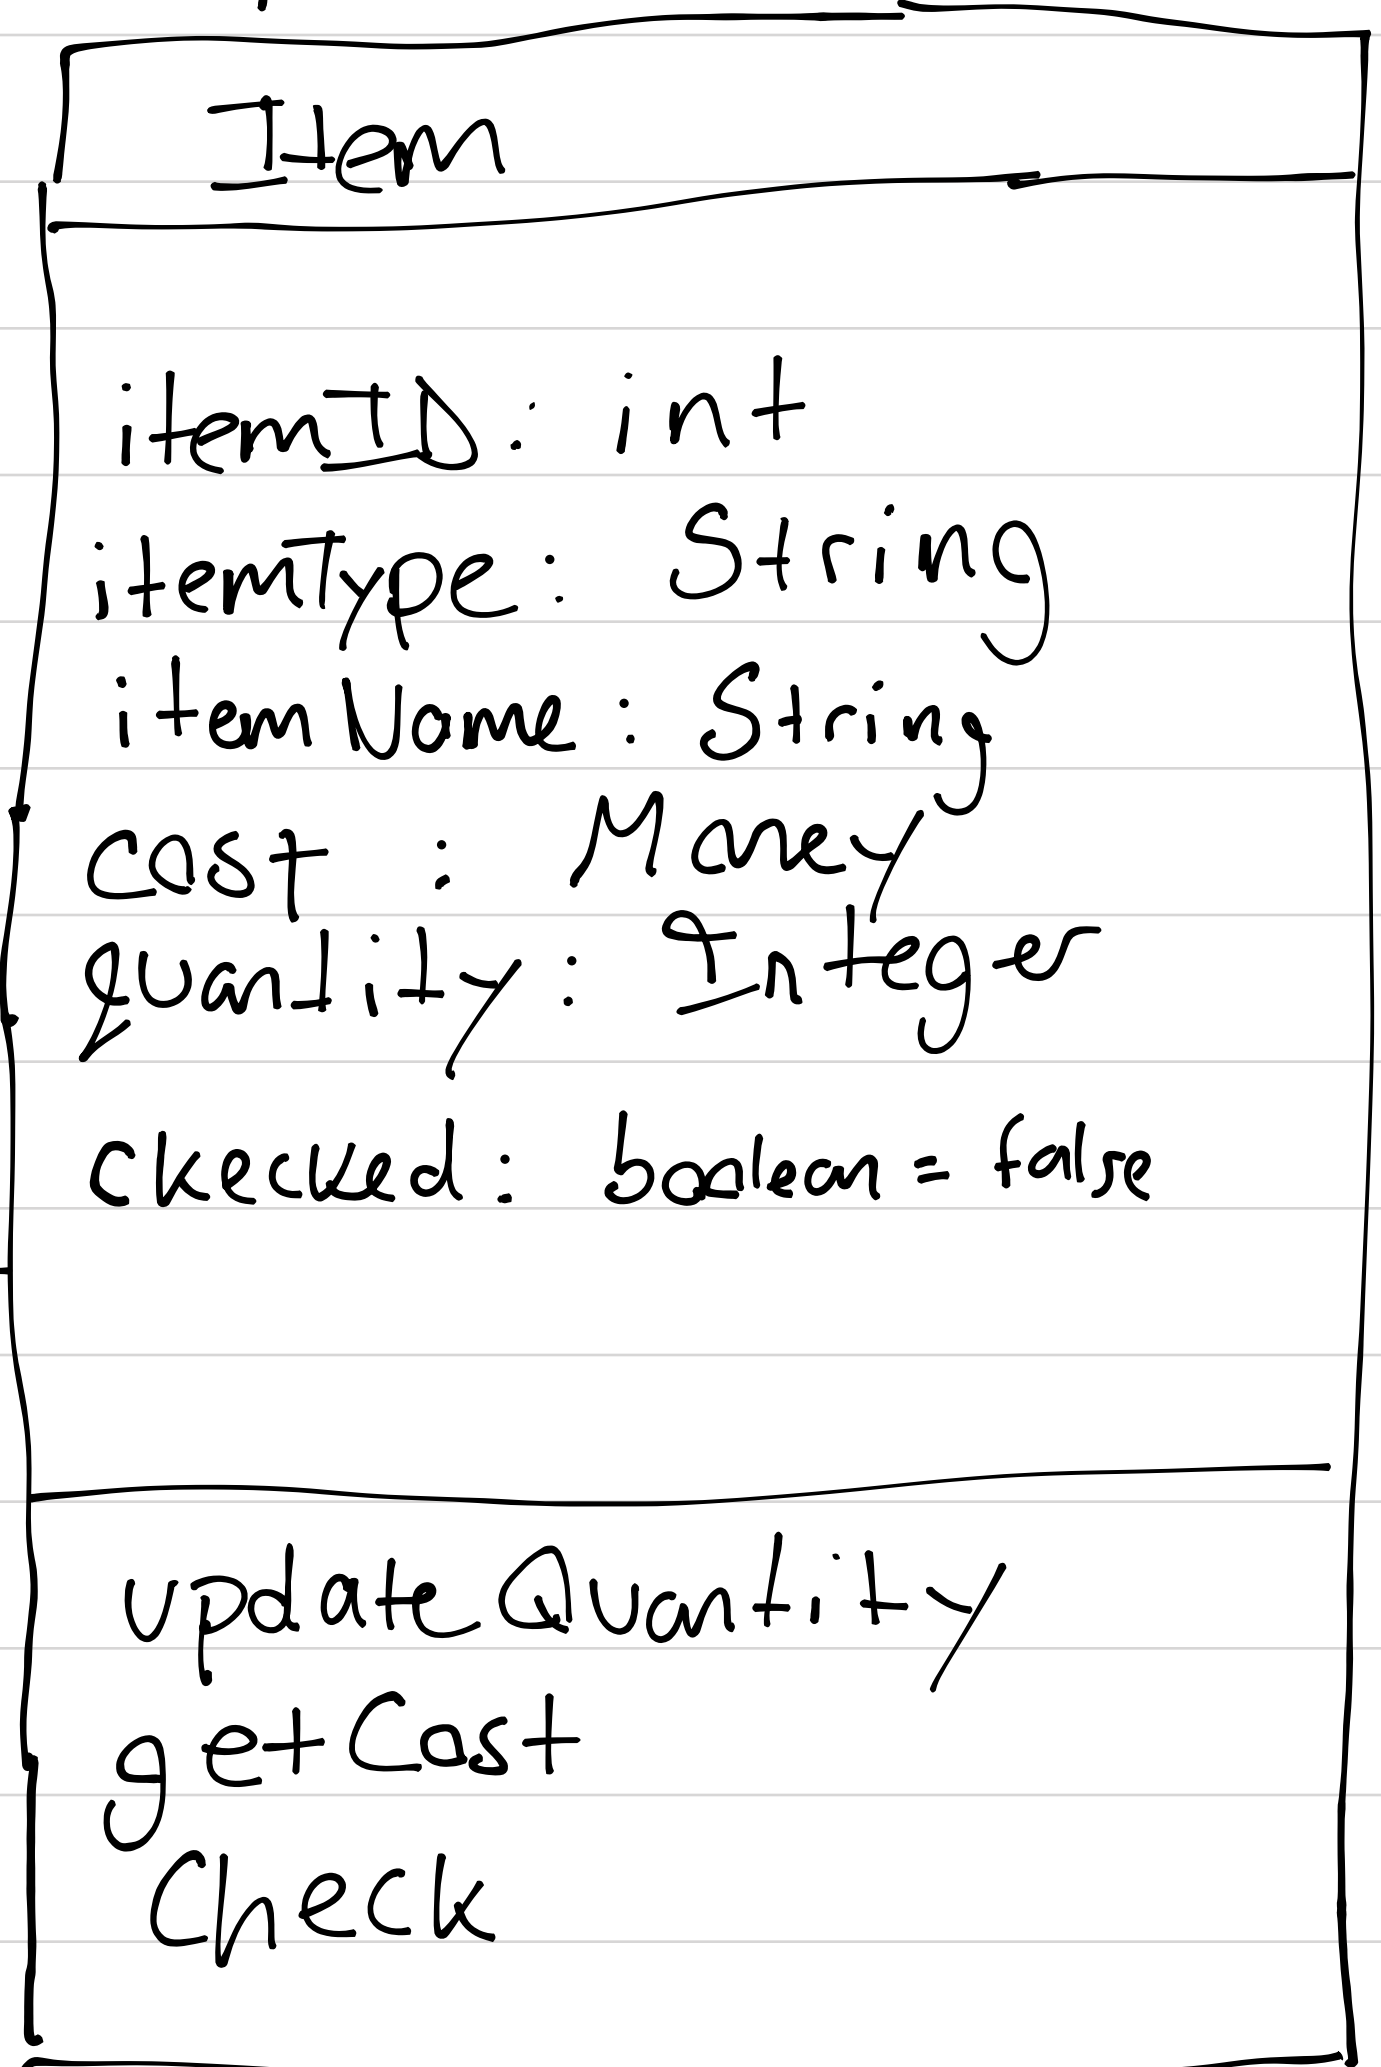 Item
itemID: int
itemType: String
itemName: String
cost: Money
quantity: Integer
ckecked: boolean = false
updateQuantity
getCost
Check